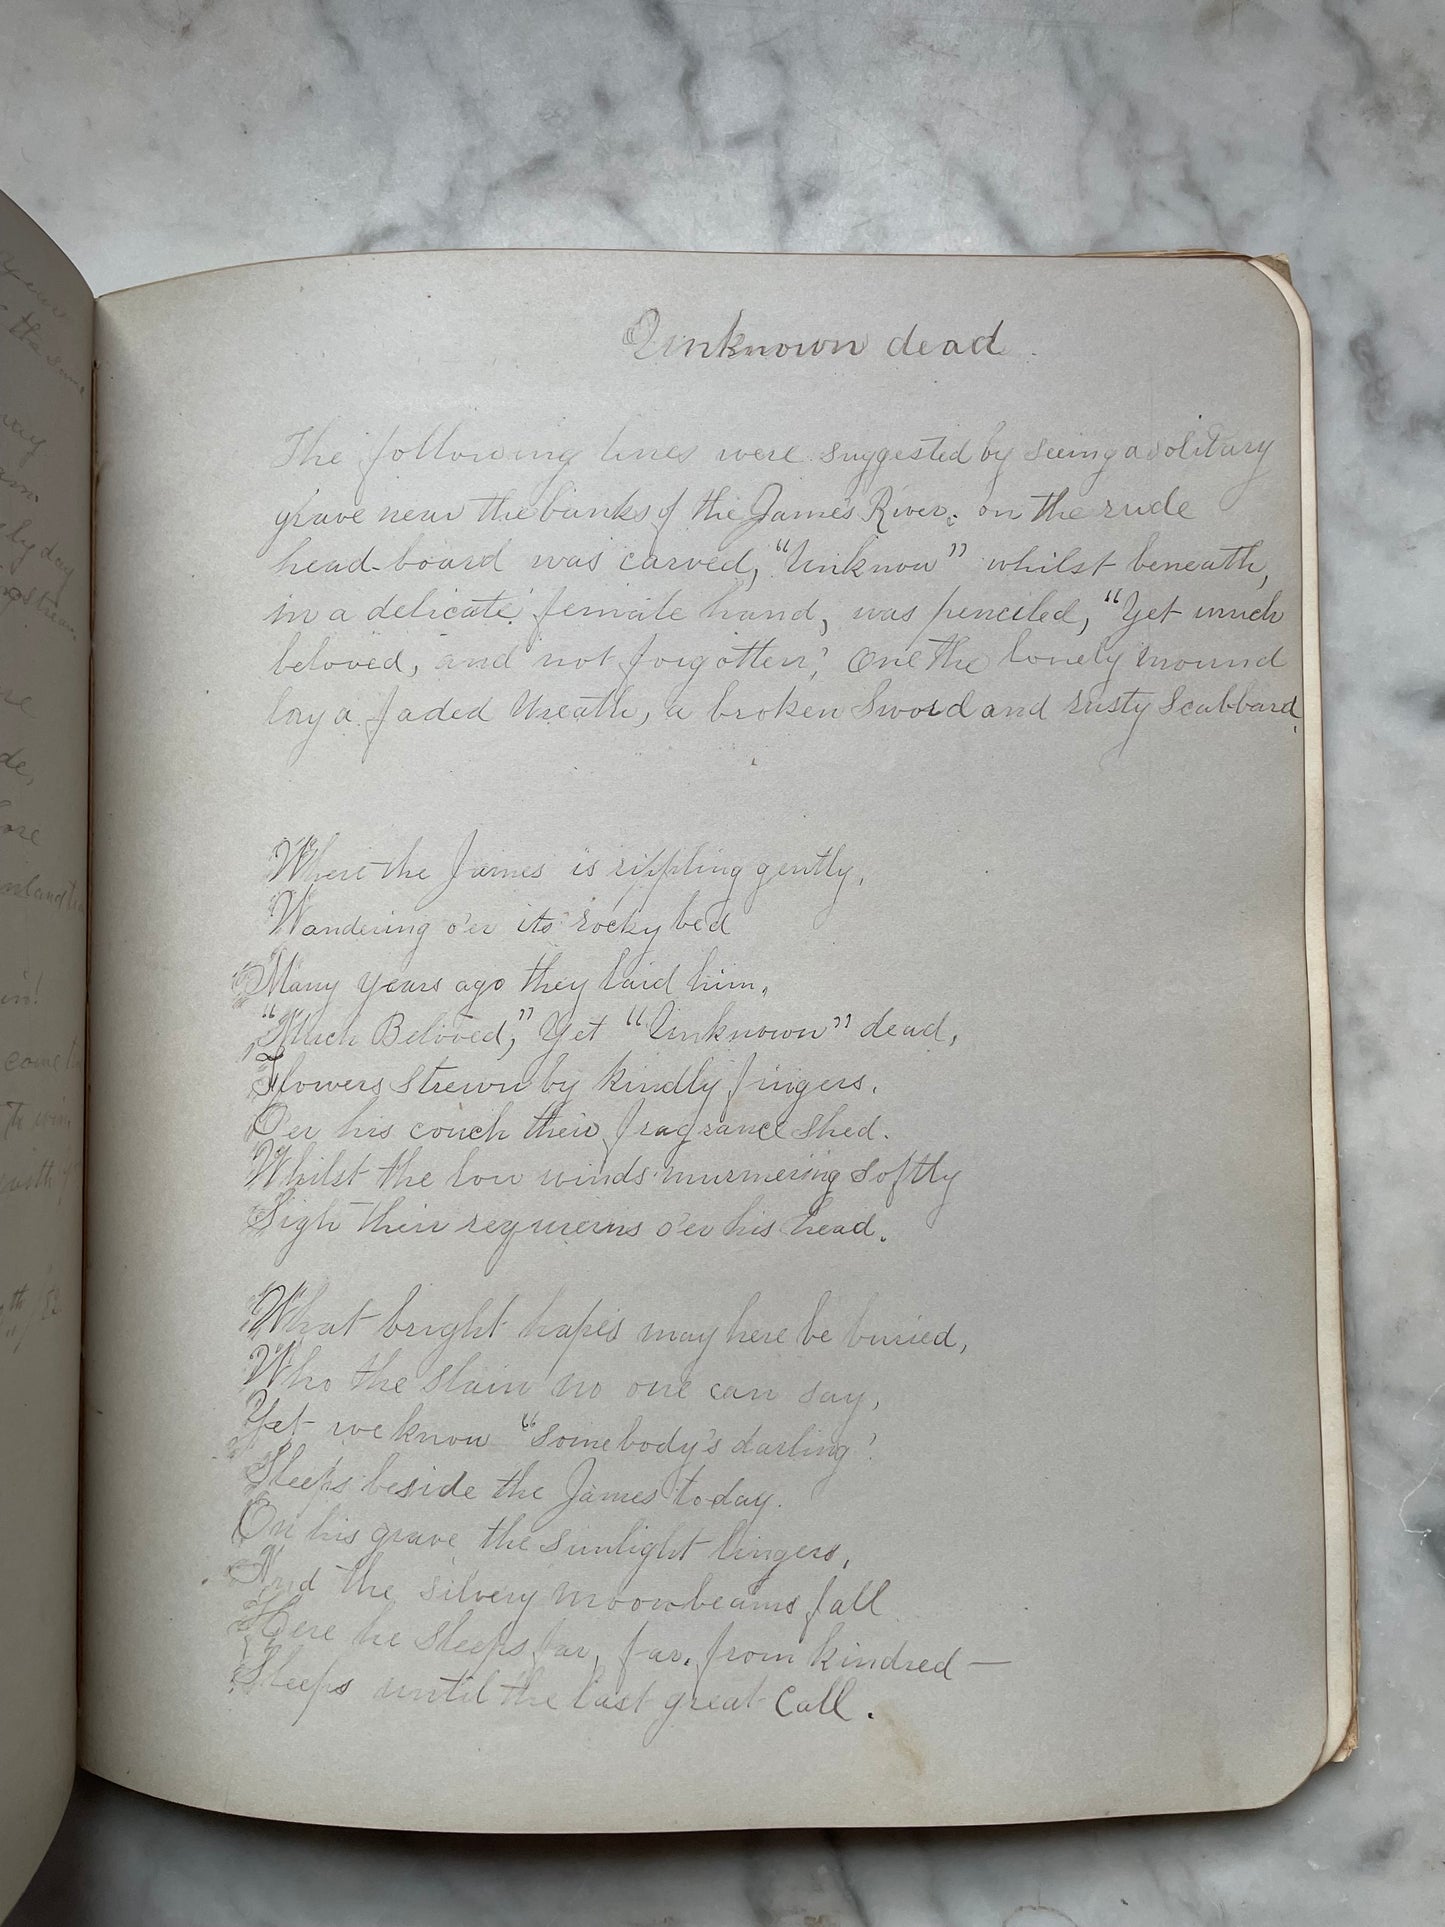 Unknown dead.
The following lines were suggested by seeing a solitary
grave near the banks of the James River; on the rude
head-board was carved, "Unknow" whilst beneath,
in a delicate female hand, was penciled, "Yet much
beloved, and not forgotten", One the lonely mound
lay a faded Wreath, a broken Sword and rusty Scabbard.
Where the James is rippling gently,
Wandering o'er its rocky bed
Many years ago they laid him,
"Much Beloved," Yet "Unknown" dead,
Flowers strewn by kindly fingers.
O'er his couch their fragrance shed.
Whilst the low winds murmering softly
Sigh their requiems o'er his head.
What bright hopes may here be buried,
Who the slain no one can say,
Yet we know "somebody's darling"
Sleeps beside the James today.
On his grave the sunlight lingers,
And the silvery moonbeams fall
Here he sleeps far, far, from kindred —
Sleeps until the last great Call.